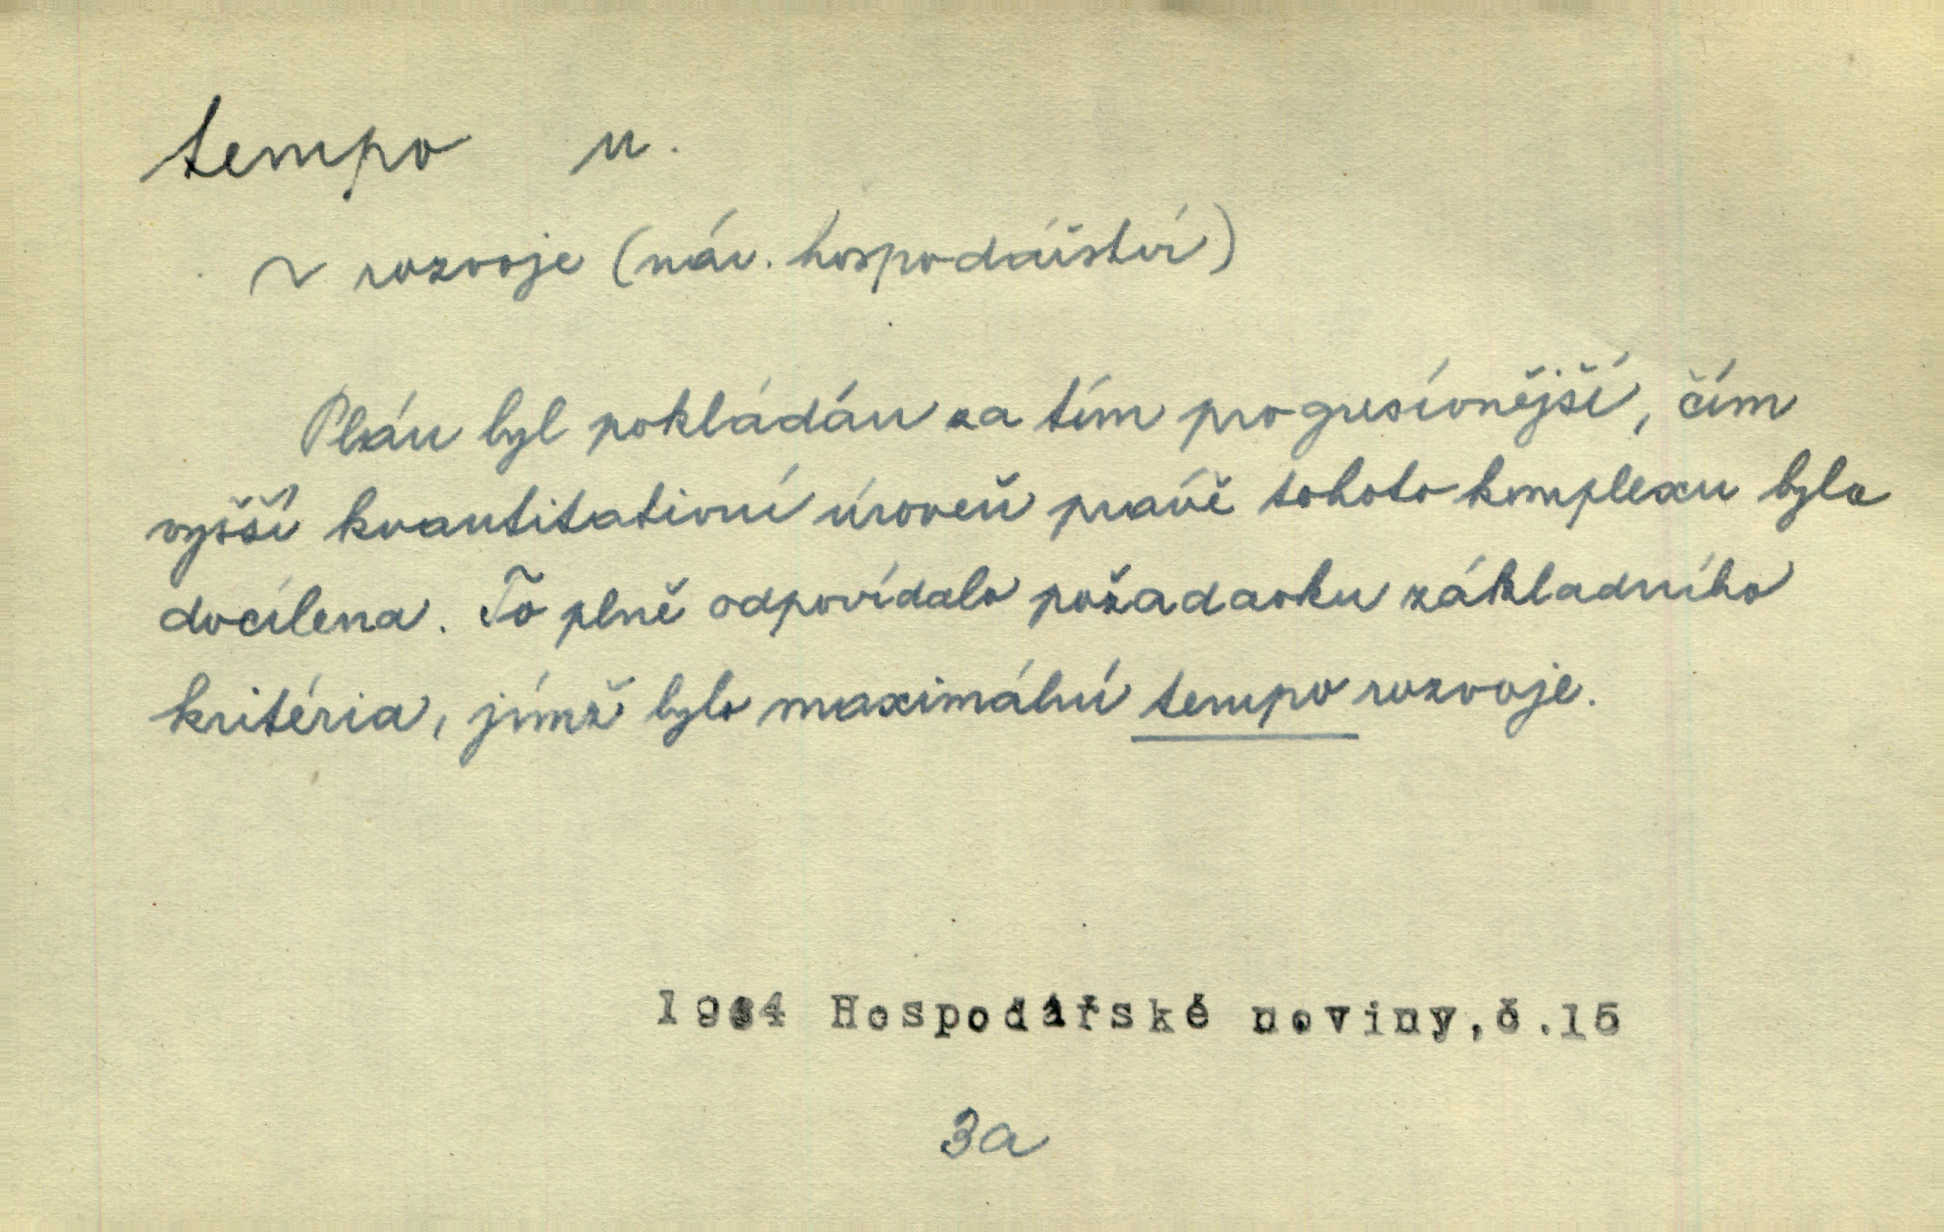 tempo n.
~ rozvoje (nár. hospodářství)
Plán byl pokládán za tím progresívnější, čím
vyšší kvantitativní úroveň právě tohoto komplexu byla
docílena. To plně odpovídalo požadavku základního
kritéria, jímž bylo maximální tempo rozvoje.
1964 Hospodářské noviny,č.15
3a